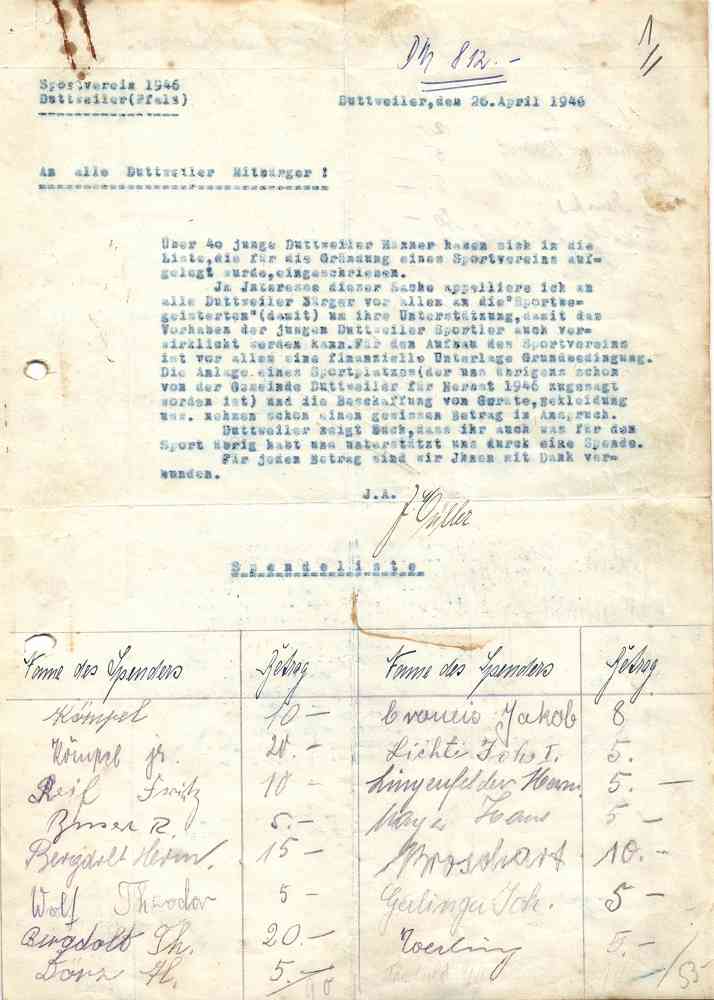 DM 812.-
1
Sportverein 1946
Duttweiler(Pfalz)
Duttweiler,den 26.April 1946
An alle Duttweiler Mitbürger !
Über 40 junge Duttweiler Männer haben sich in die
Liste,die für die Gründung eines Sportvereins auf-
gelegt wurde,eingeschrieben.
Jm Jnteresse dieser Sache appelliere ich an
alle Duttweiler Bürger vor allem an die"Sportbe-
geisterten"(damit) um ihre Unterstützung,damit das
Vorhaben der jungen Duttweiler Sportler auch ver-
wirklicht werden kann.Für den Aufbau des Sportvereins
ist vor allem eine finanzielle Unterlage Grundbedingung.
Die Anlage eines Sportplatzes(der uns übrigens schon
von der Gemeinde Duttweiler für Herbst 1946 zugesagt
worden ist) und die Beschaffung von Geräte,Bekleidung
usw. nehmen schon einen gewissen Betrag in Anspruch.
Duttweiler zeigt Euch,dass ihr auch was für den
Sport übrig habt und unterstützt uns durch eine Spende.
Für jeden Betrag sind wir Jhnen mit Dank ver-
bunden.
J.A.
Spendeliste
Name des Spenders Betrag Name des Spenders Betrag
Kömpel 10 – Croneis Jakob 8
Kömpel jr. 20.– Lichti Joh I. 5.
Reif Fritz 10 – Lingenfelder Herm. 5. –
R. 5.– Mayer 5 –
Bergdolt Herm. 15 – Borschart 10.–
Wolf Theodor 5 – Joh. 5 –
Bergdolt Th. 20.– 5.–
Dörr H. 5.–